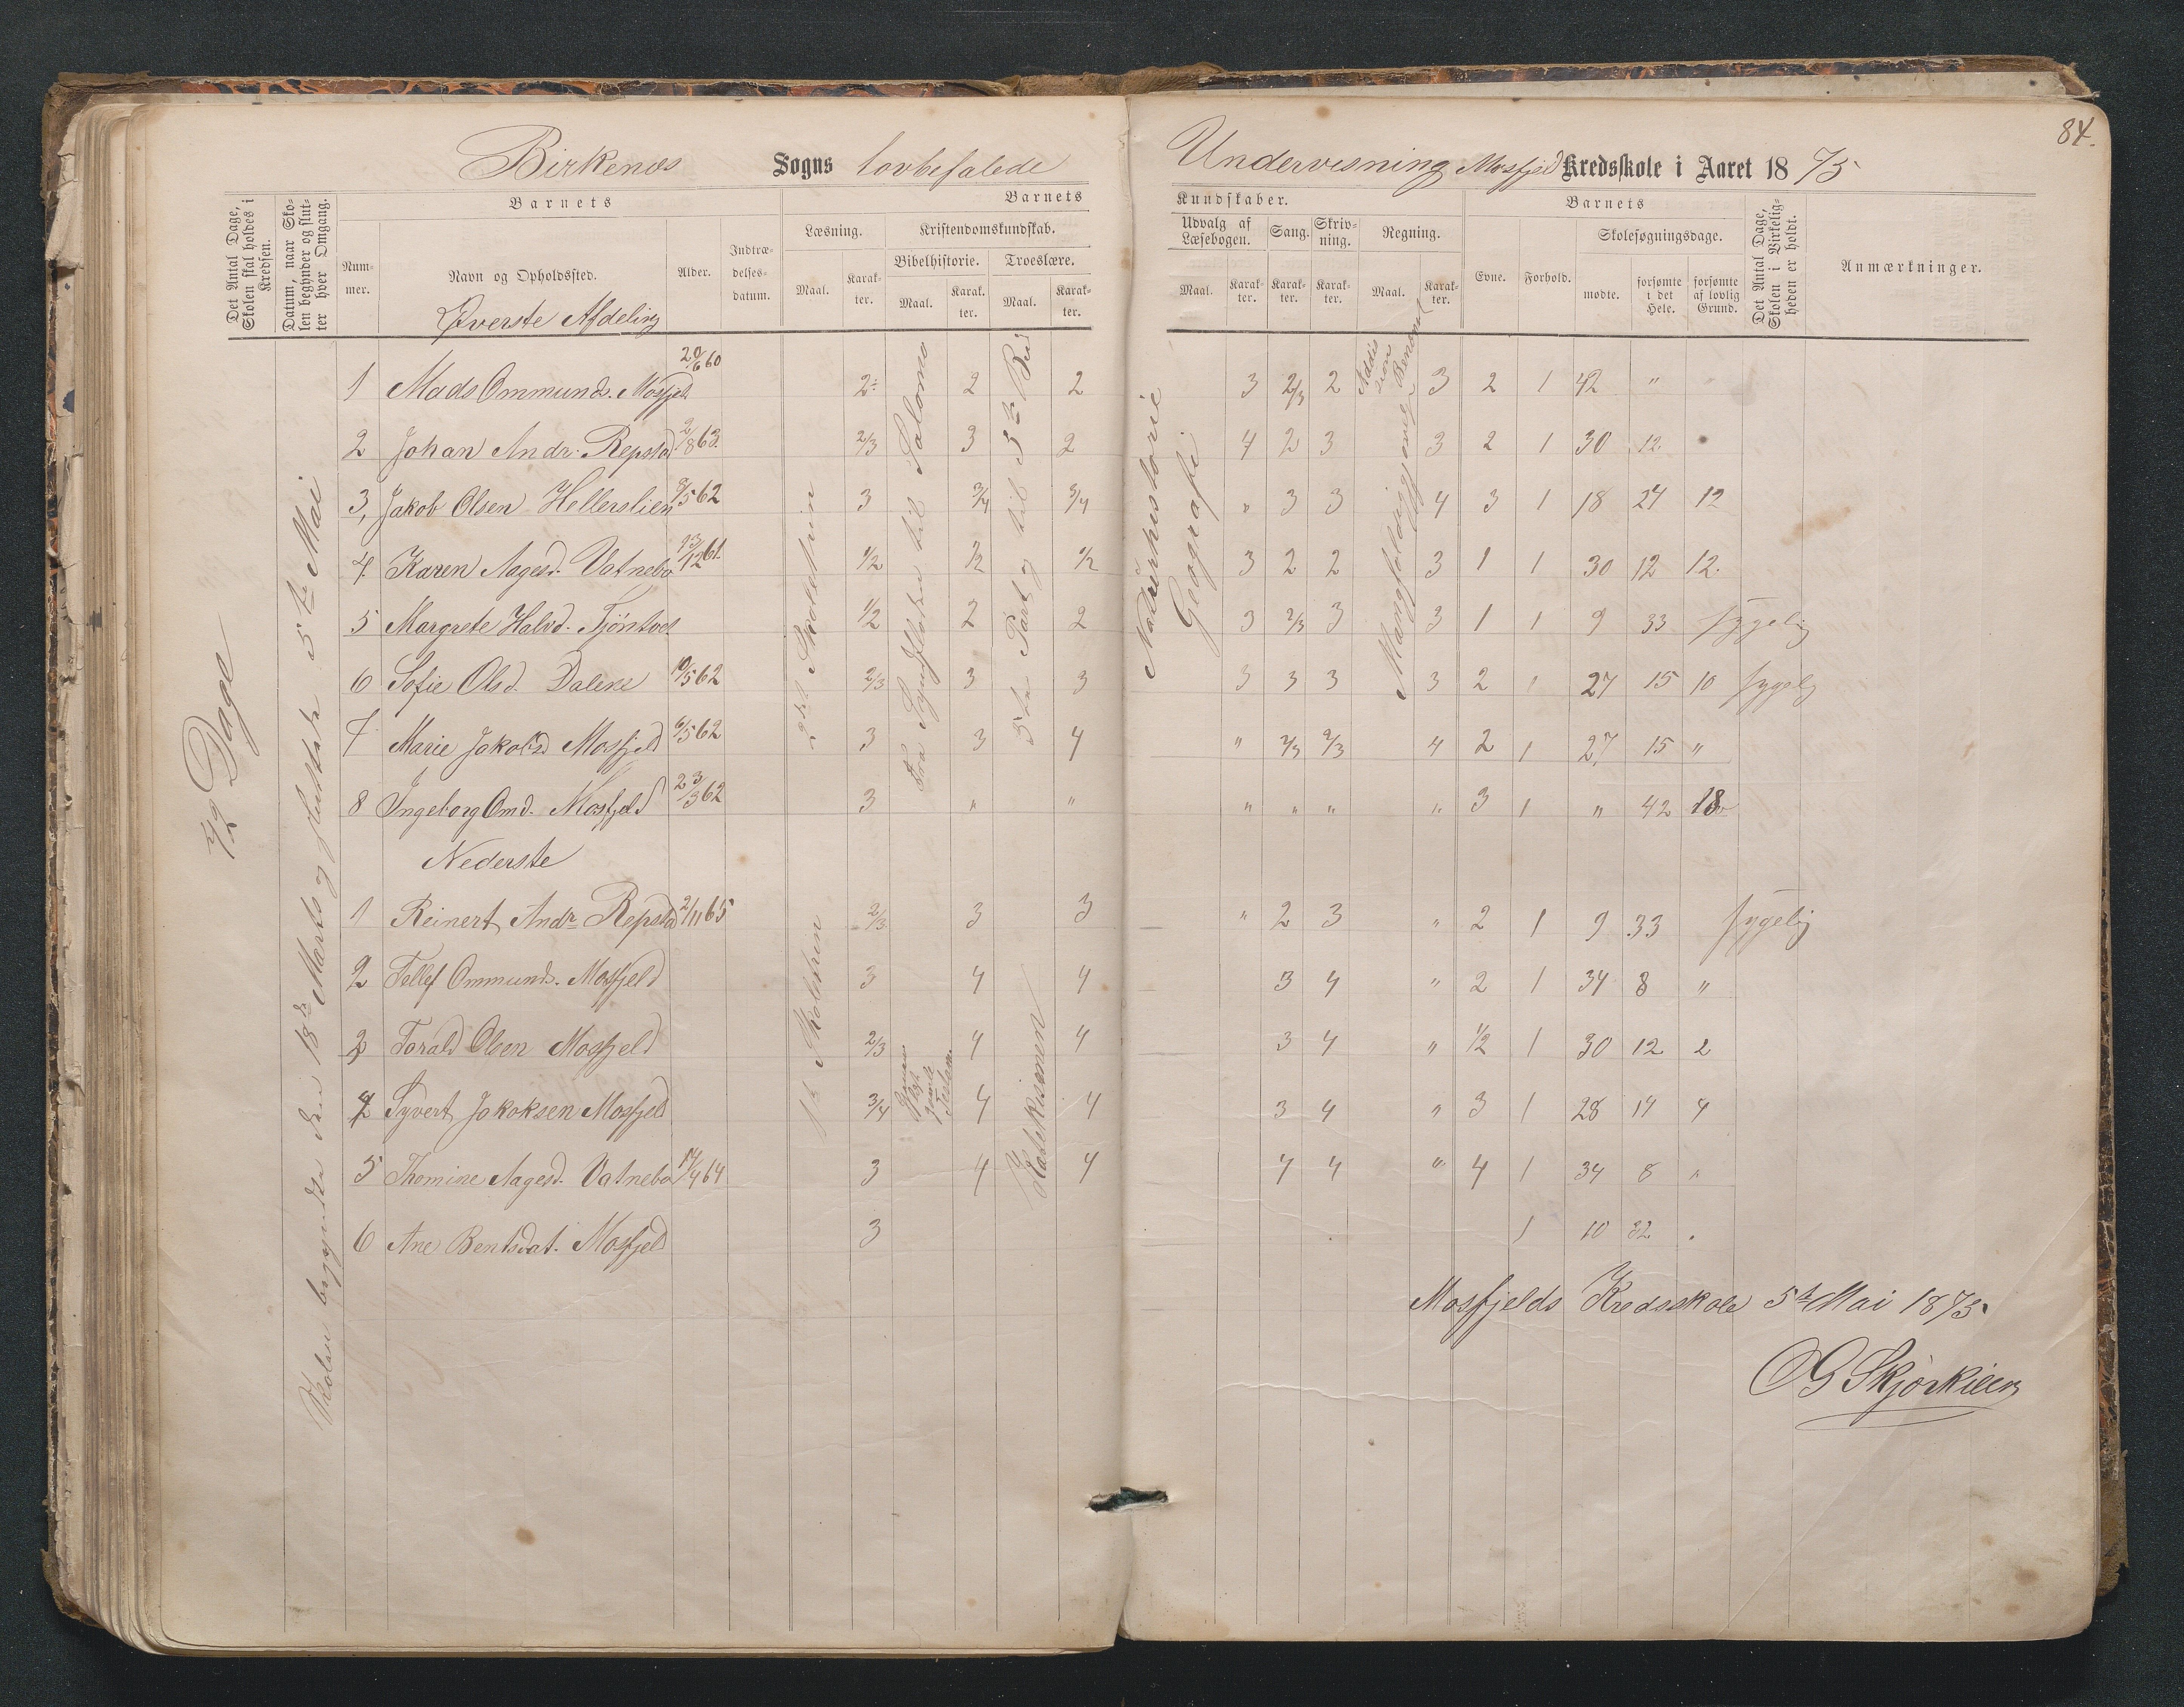 84.
Birkenæs Sogns lovbefalede Undervisning Mosfjeld Kredsskole i Aaret 1875
Det Antal Dage, Skolen skal holdes i Kredsen.
Datum, naar Skolen begynder og slutter hver Omgang.
Barnets
Nummer.
Navn og Opholdssted.
Alder.
Indtrædelsesdatum.
Barnets
Læsning.
Maal.
Karakter.
Kristendomskundskab.
Bibelhistorie.
Maal.
Karakter.
Troeslære.
Maal.
Karakter.
Kundskaber.
Udvalg af Læsebogen.
Maal.
Karakter.
Sang.
Karakter.
Skrivning.
Karakter.
Regning.
Maal.
Karakter.
Barnets
Evne.
Forhold.
Skolesøgningsdage.
mødte.
forsømte i det Hele.
forsømte af lovlig Grund.
Det Antal Dage, Skolen i Virkeligheden er holdt.
Anmærkninger.
Øverste Afdeling
1 Mads Ommunds. Mosfjeld 20/6 60 2÷ 2 2 3 2/3 2 3 2 1 42 " "
2 Johan Andr. Repstad 2/8 63. 2/3 3 2 4 2 3 3 2 1 30 12.
3, Jakob Olsen Hellerslien 8/5 62 3 3/4 3/4 " 3 3 4 3 1 18 24 12
4. Karen Aagesd. Vatnebo 13/12 61. 1/2 1/2 1/2 3 2 2 3 1 1 30 12 12.
5 Margrete Halvd. Tjöntvet 1/2 2 2 3 2/3 3 3 1 1 9 33 sygelig
6 Sofie Olsd. Dalene 10/5 62 2/3 3 3 3 3 3 3 2 1 27 15 10 sygelig
7 Marie Jakobsd Mosfjeld 6/5 62 3 3 4 " 2/3 2/3 4 2 1 27 15 "
8 Ingeborg Omd. Mosfjeld 23/3 62 3 " " " " " " 3 1 " 42 18
Nederste
1 Reinert Andr Repstad 2/11 65 2/3 3 3 " 2 3 " 2 1 9 33 sygelig
2 Tellef Ommunds. Mosfjeld 3 4 4 3 4 " 2 1 34 8 "
3 Torald Olsen Mosfjeld 2/3 4 4 3 4 " 1/2 1 30 12 2
4 Syvert Jakobsen Mosfjeld 3/4 4 4 3 4 " 3 1 28 14 4
5 Thomine Aagesd. Vatnebo 14/4 64 3 4 4 4 4 " 4 1 34 8 "
6 Ane Bentsdat. Mosfjeld 3 1 10 32 .
42 Dage
Skolen begyndte den 18de Marts og sluttede 5te Mai
2det Skoletrin
Fra Syndfloden til Salomo
5te Part og til 3te Bud
Naturhistorie
Geografi
Addision
Mangfoldig
1ste Skoletrin
gamle Testam.
Katekismen
Mosfjelds Kredsskole 5te Mai 1875.
OG Skjørkilen